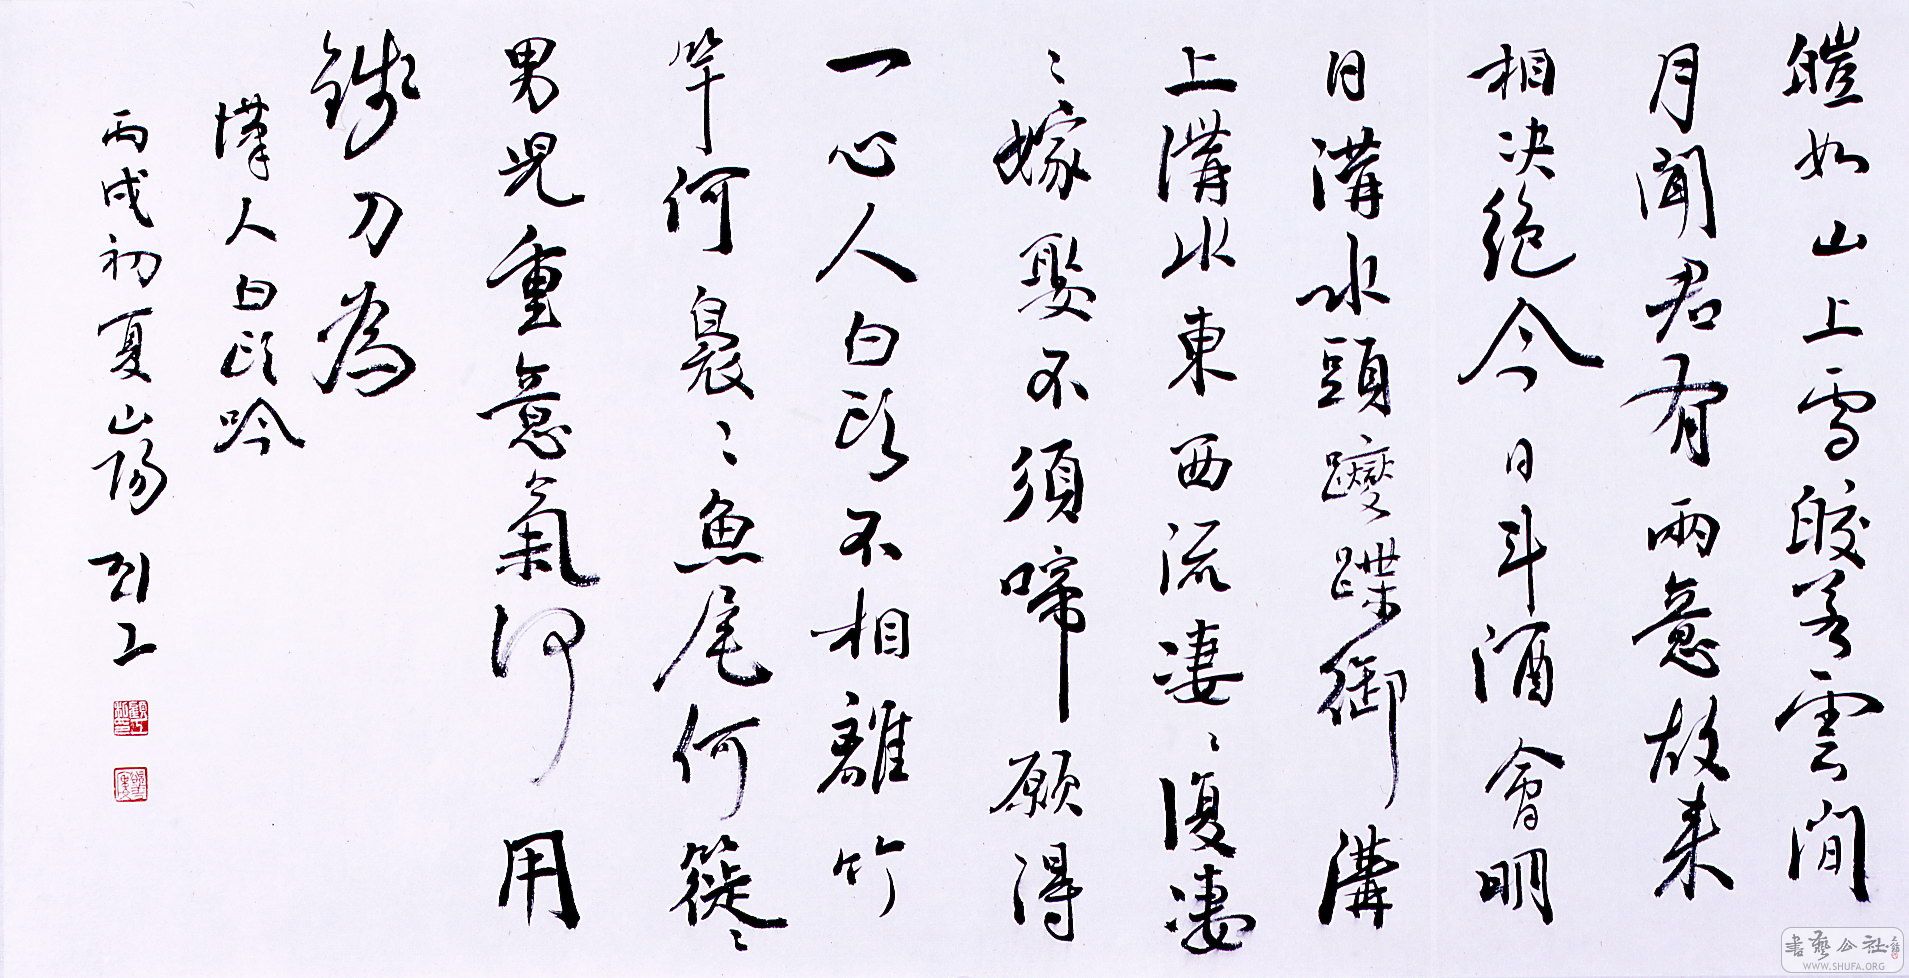 皚如山上雪皎若雲間
月聞君有兩意故来
相决絶今日斗酒會明
日溝水頭躞蹀御溝
上溝水東西流淒〻復淒
〻嫁娶不須啼願得
一心人白頭不相離竹
竿何裊〻魚尾何簁〻
男兒重意氣何用
錢刀為
漢人白頭吟
丙戌初夏山陽顧工
書藝公社
WWW.SHUFA.ORG